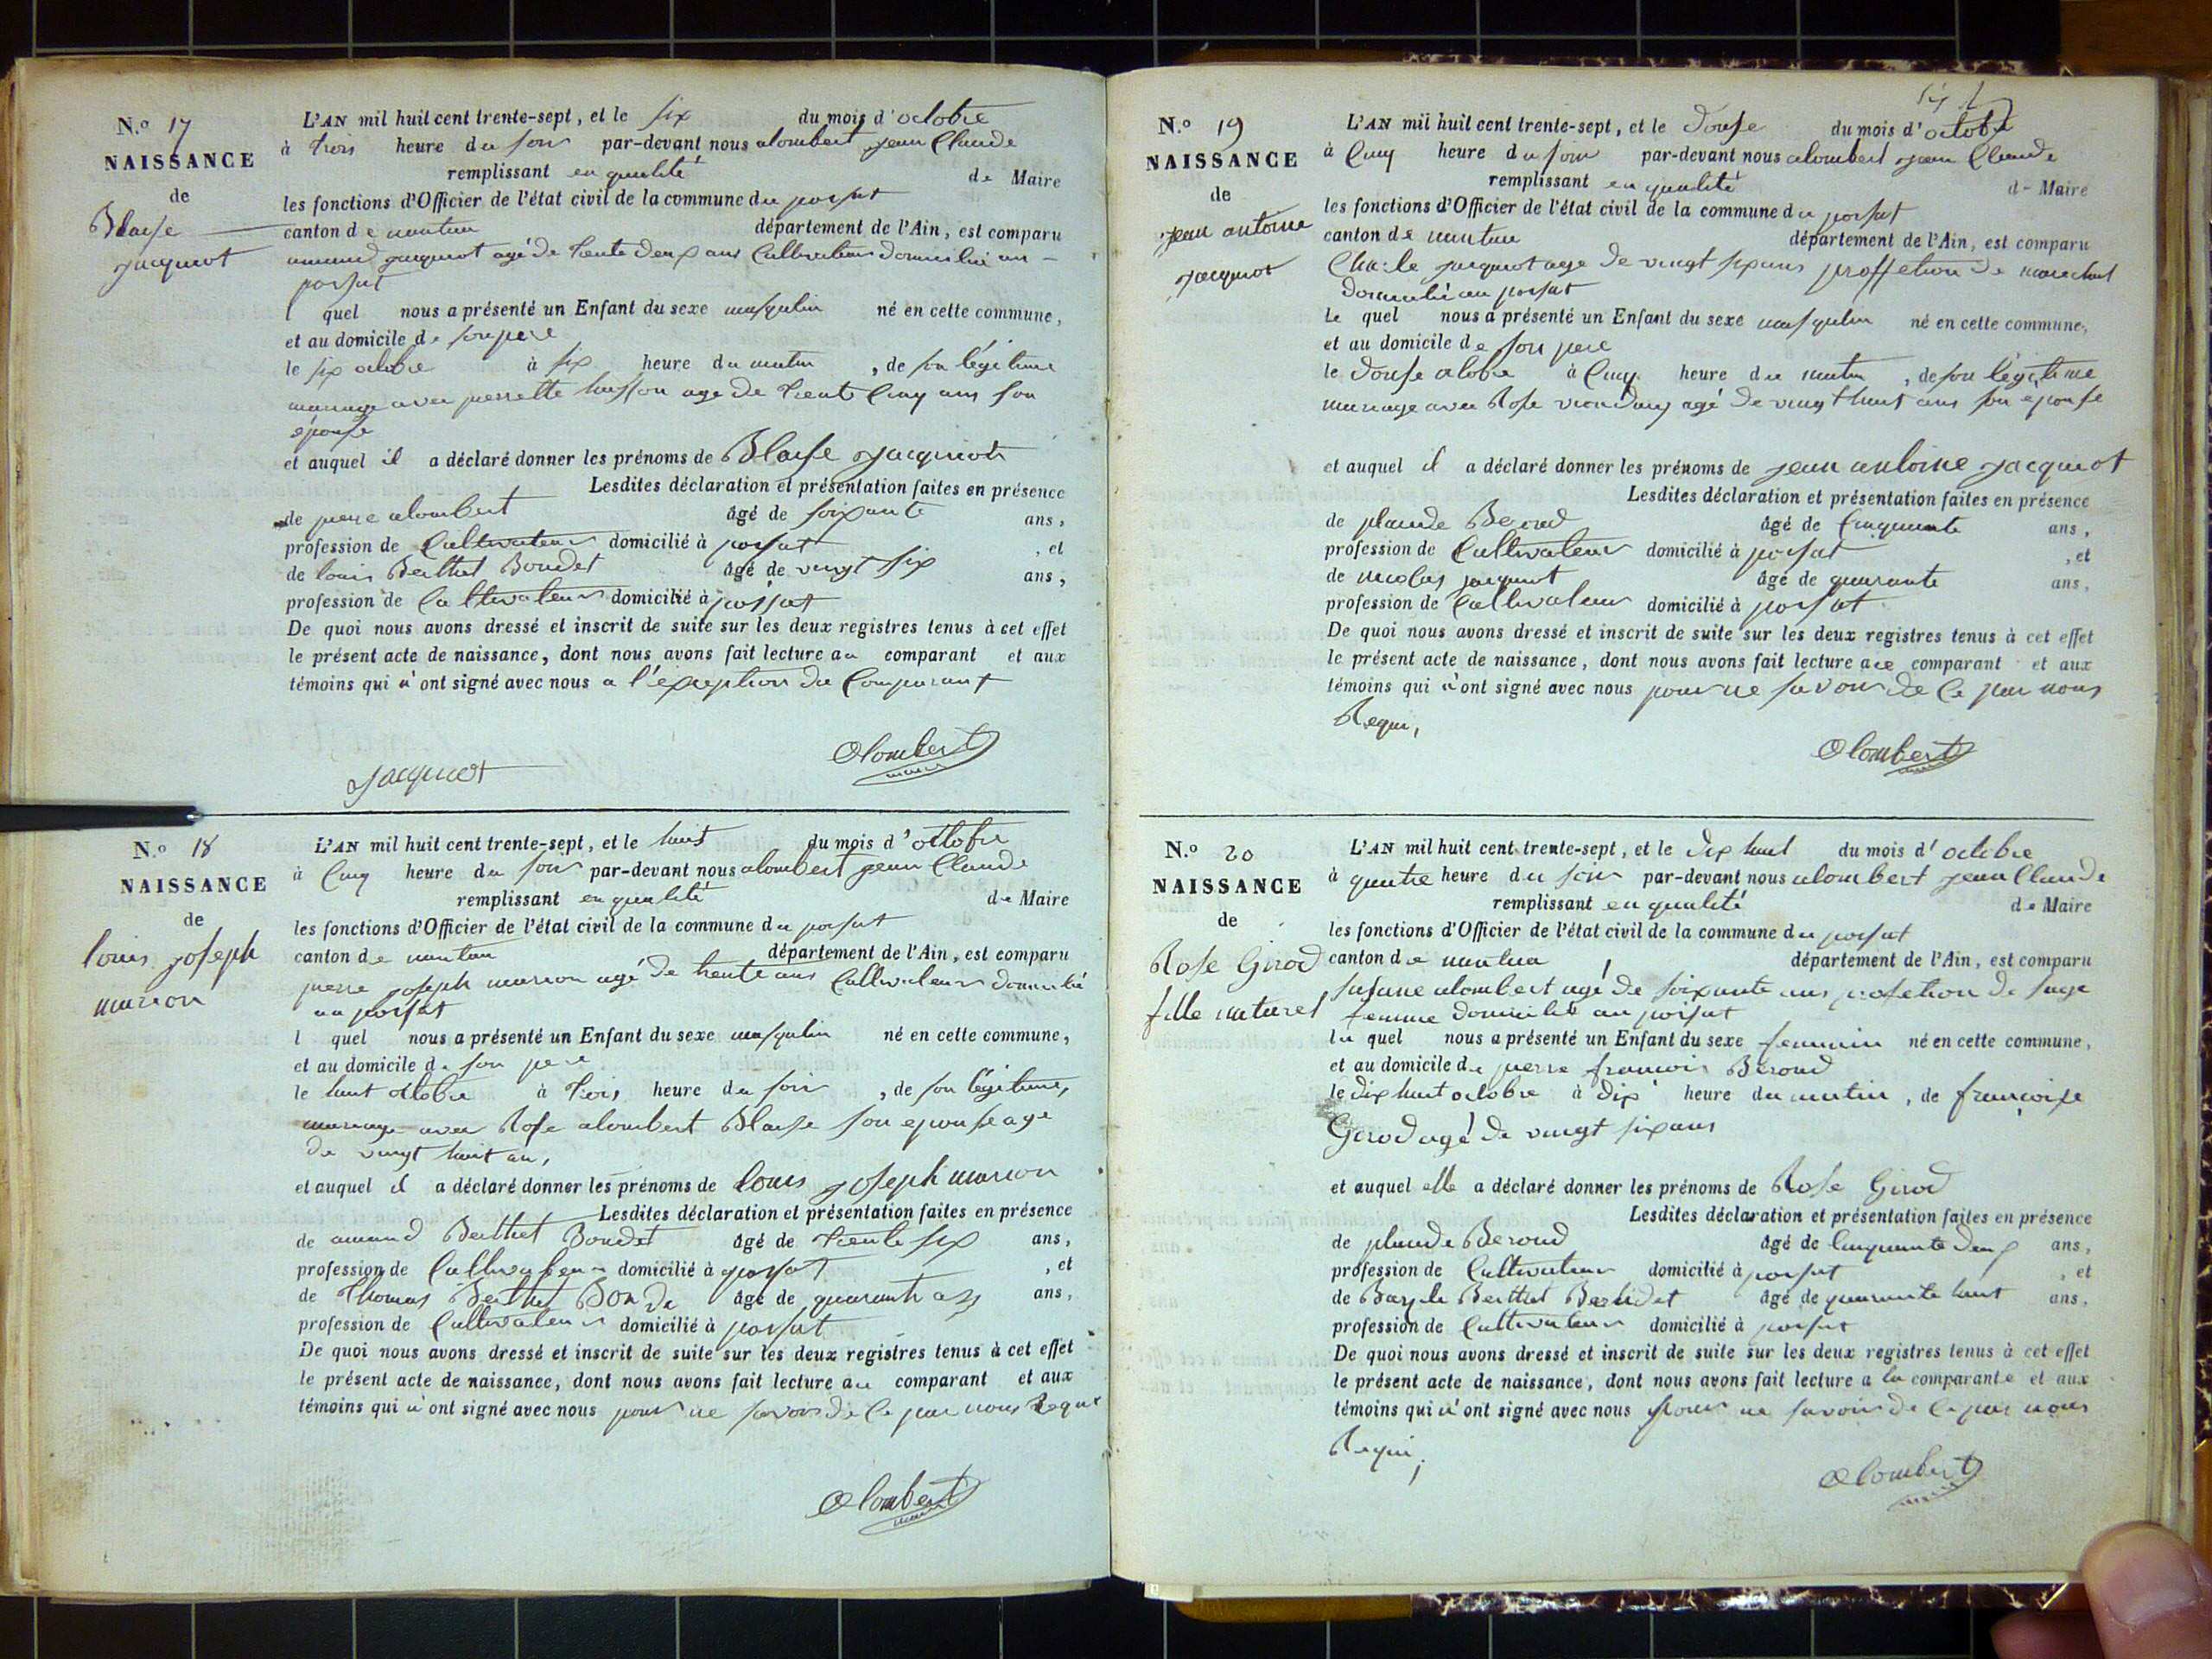 N.o 17
NAISSANCE
de
Blaise
Jacquiot
L'AN mil huit cent trente-sept, et le six du mois d'octobre
à trois heure du soir par-devant nous alombert jean Claude
remplissant en qualité de Maire
les fonctions d'Officier de l'état civil de la commune du poisat
canton de nantua département de l'Ain, est comparu
amand jacquiot agé de trente deux ans Cultivateur domicilié au
poisat
l quel nous a présenté un Enfant du sexe masqulin né en cette commune,
et au domicile de son pere
le six octobre à six heure du matin, de son légitime
mariage avec pierrette husson age de trente Cinq ans son
épouse
et auquel il a déclaré donner les prénoms de Blaise Jacquiot
Lesdites déclaration et présentation faites en présence
de pierre alombert âgé de soixante ans,
profession de Cultivateur domicilié à poisat, et
de louis Berthet Bondet âgé de vingt six ans,
profession de Cultivateur domicilié à poisat
De quoi nous avons dressé et inscrit de suite sur les deux registres tenus à cet effet
le présent acte de naissance, dont nous avons fait lecture au comparant et aux
témoins qui n'ont signé avec nous a l'éxception du Comparant
Jacquiot Alombert
maire
N.o 18
NAISSANCE
de
louis joseph
marion
L'AN mil huit cent trente-sept, et le huit du mois d'octobre
à Cinq heure du soir par-devant nous alombert jean Claude
remplissant en qualité de Maire
les fonctions d'Officier de l'état civil de la commune du poisat
canton de nantua département de l'Ain, est comparu
pierre joseph marion agé de trente ans Cultivateur domicilié
au poisat
l quel nous a présenté un Enfant du sexe masqulin né en cette commune,
et au domicile de son pere
le huit octobre à trois heure du soir, de son légitime,
mariage avec Rose alombert Blaise son epouse age
de vingt huit an,
et auquel il a déclaré donner les prénoms de louis joseph marion
Lesdites déclaration et présentation faites en présence
de amand Berthet Bondet âgé de trente six ans,
profession de Cultivateur domicilié à poisat, et
de Thomas Berthet Bonde âgé de quarante ans,
profession de Cultivateur domicilié à poisat
De quoi nous avons dressé et inscrit de suite sur les deux registres tenus à cet effet
le présent acte de naissance, dont nous avons fait lecture au comparant et aux
témoins qui n'ont signé avec nous pour ne savoir de ce par nous Requi
Alombert
maire
N.o 19
NAISSANCE
de
jean antoine
jacquiot
L'AN mil huit cent trente-sept, et le douse du mois d'octobre
à Cinq heure du soir par-devant nous alombert jean Claude
remplissant en qualité de Maire
les fonctions d'Officier de l'état civil de la commune du poisat
canton de nantua département de l'Ain, est comparu
Charle jacquiot age de vingt six ans proffetion de marechal
domicilié au poisat
le quel nous a présenté un Enfant du sexe masqulin né en cette commune,
et au domicile de son pere
le douse octobre à Cinq heure du matin, de son légitime
mariage avec Rose agé de vingt huit ans son epouse
et auquel il a déclaré donner les prénoms de jean antoine jacquiot
Lesdites déclaration et présentation faites en présence
de plaude Beroud âgé de Cinquante ans,
profession de Cultivateur domicilié à poisat, et
de nicolas jacquiot âgé de quarante ans,
profession de Cultivateur domicilié à poisat
De quoi nous avons dressé et inscrit de suite sur les deux registres tenus à cet effet
le présent acte de naissance, dont nous avons fait lecture au comparant et aux
témoins qui n'ont signé avec nous pour ne savoir de ce par nous
Requi,
Alombert
maire
N.o 20
NAISSANCE
de
Rose Girod
fille naturel
L'AN mil huit cent trente-sept, et le dix huit du mois d'octobre
à quatre heure du soir par-devant nous alombert jean Claude
remplissant en qualité de Maire
les fonctions d'Officier de l'état civil de la commune du poisat
canton de nantua département de l'Ain, est comparu
susane alombert agé de soixante ans profetion de sage
femme domicilié au poisat
la quel nous a présenté un Enfant du sexe feminin né en cette commune,
et au domicile de pierre francois Béroud
le dix huit octobre à dix heure du matin, de francoise
Girod agé de vingt six ans
et auquel elle a déclaré donner les prénoms de Rose Girod
Lesdites déclaration et présentation faites en présence
de plaude Beroud âgé de Cinquante deux ans,
profession de Cultivateur domicilié à poisat, et
de Berthet âgé de quarante huit ans,
profession de Cultivateur domicilié à poisat
De quoi nous avons dressé et inscrit de suite sur les deux registres tenus à cet effet
le présent acte de naissance, dont nous avons fait lecture a la comparante et aux
témoins qui n'ont signé avec nous pour ne savoir de ce par nous
Requi,
Alombert
maire